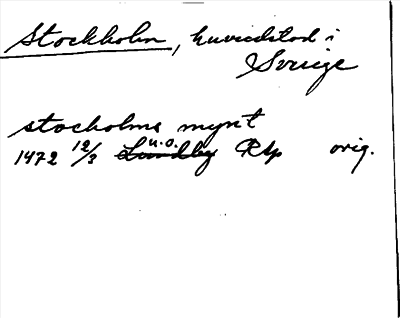 Stockholm, huvudstad i
Sverige
stocholms mynt
1472 12/3 u.o. Lundby RAp orig.